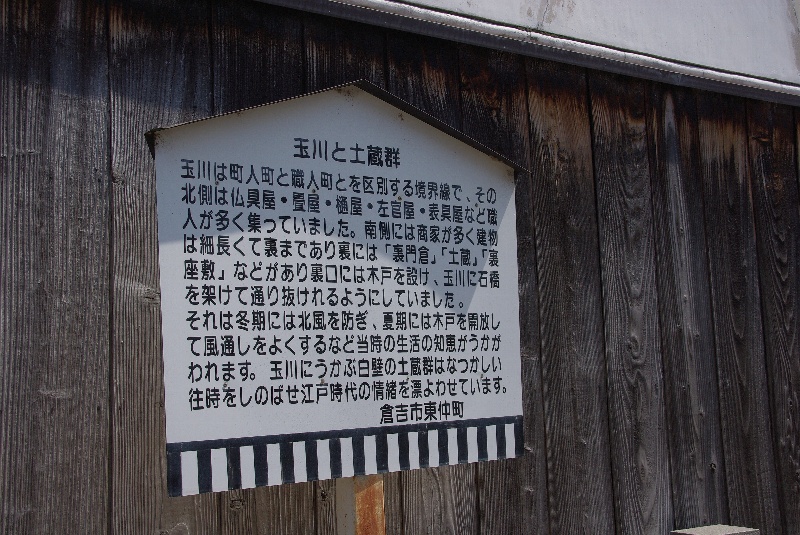 玉川と土蔵群
玉川は町人町と職人町とを区別する境界線で、その
北側は仏具屋・畳屋・樋屋・左官屋・表具屋など職
人が多く集っていました。南側には商家が多く建物
は細長くて裏まであり裏には「裏門倉」「土蔵」「裏
座敷」などがあり裏口には木戸を設け、玉川に石橋
を架けて通り抜けれるようにしていました。
それは冬期には北風を防ぎ、夏期には木戸を開放し
て風通しをよくするなど当時の生活の知恵がうかが
われます。玉川にうかぶ白壁の土蔵群はなつかしい
往時をしのばせ江戸時代の情緒を漂よわせています。
倉吉市東仲町